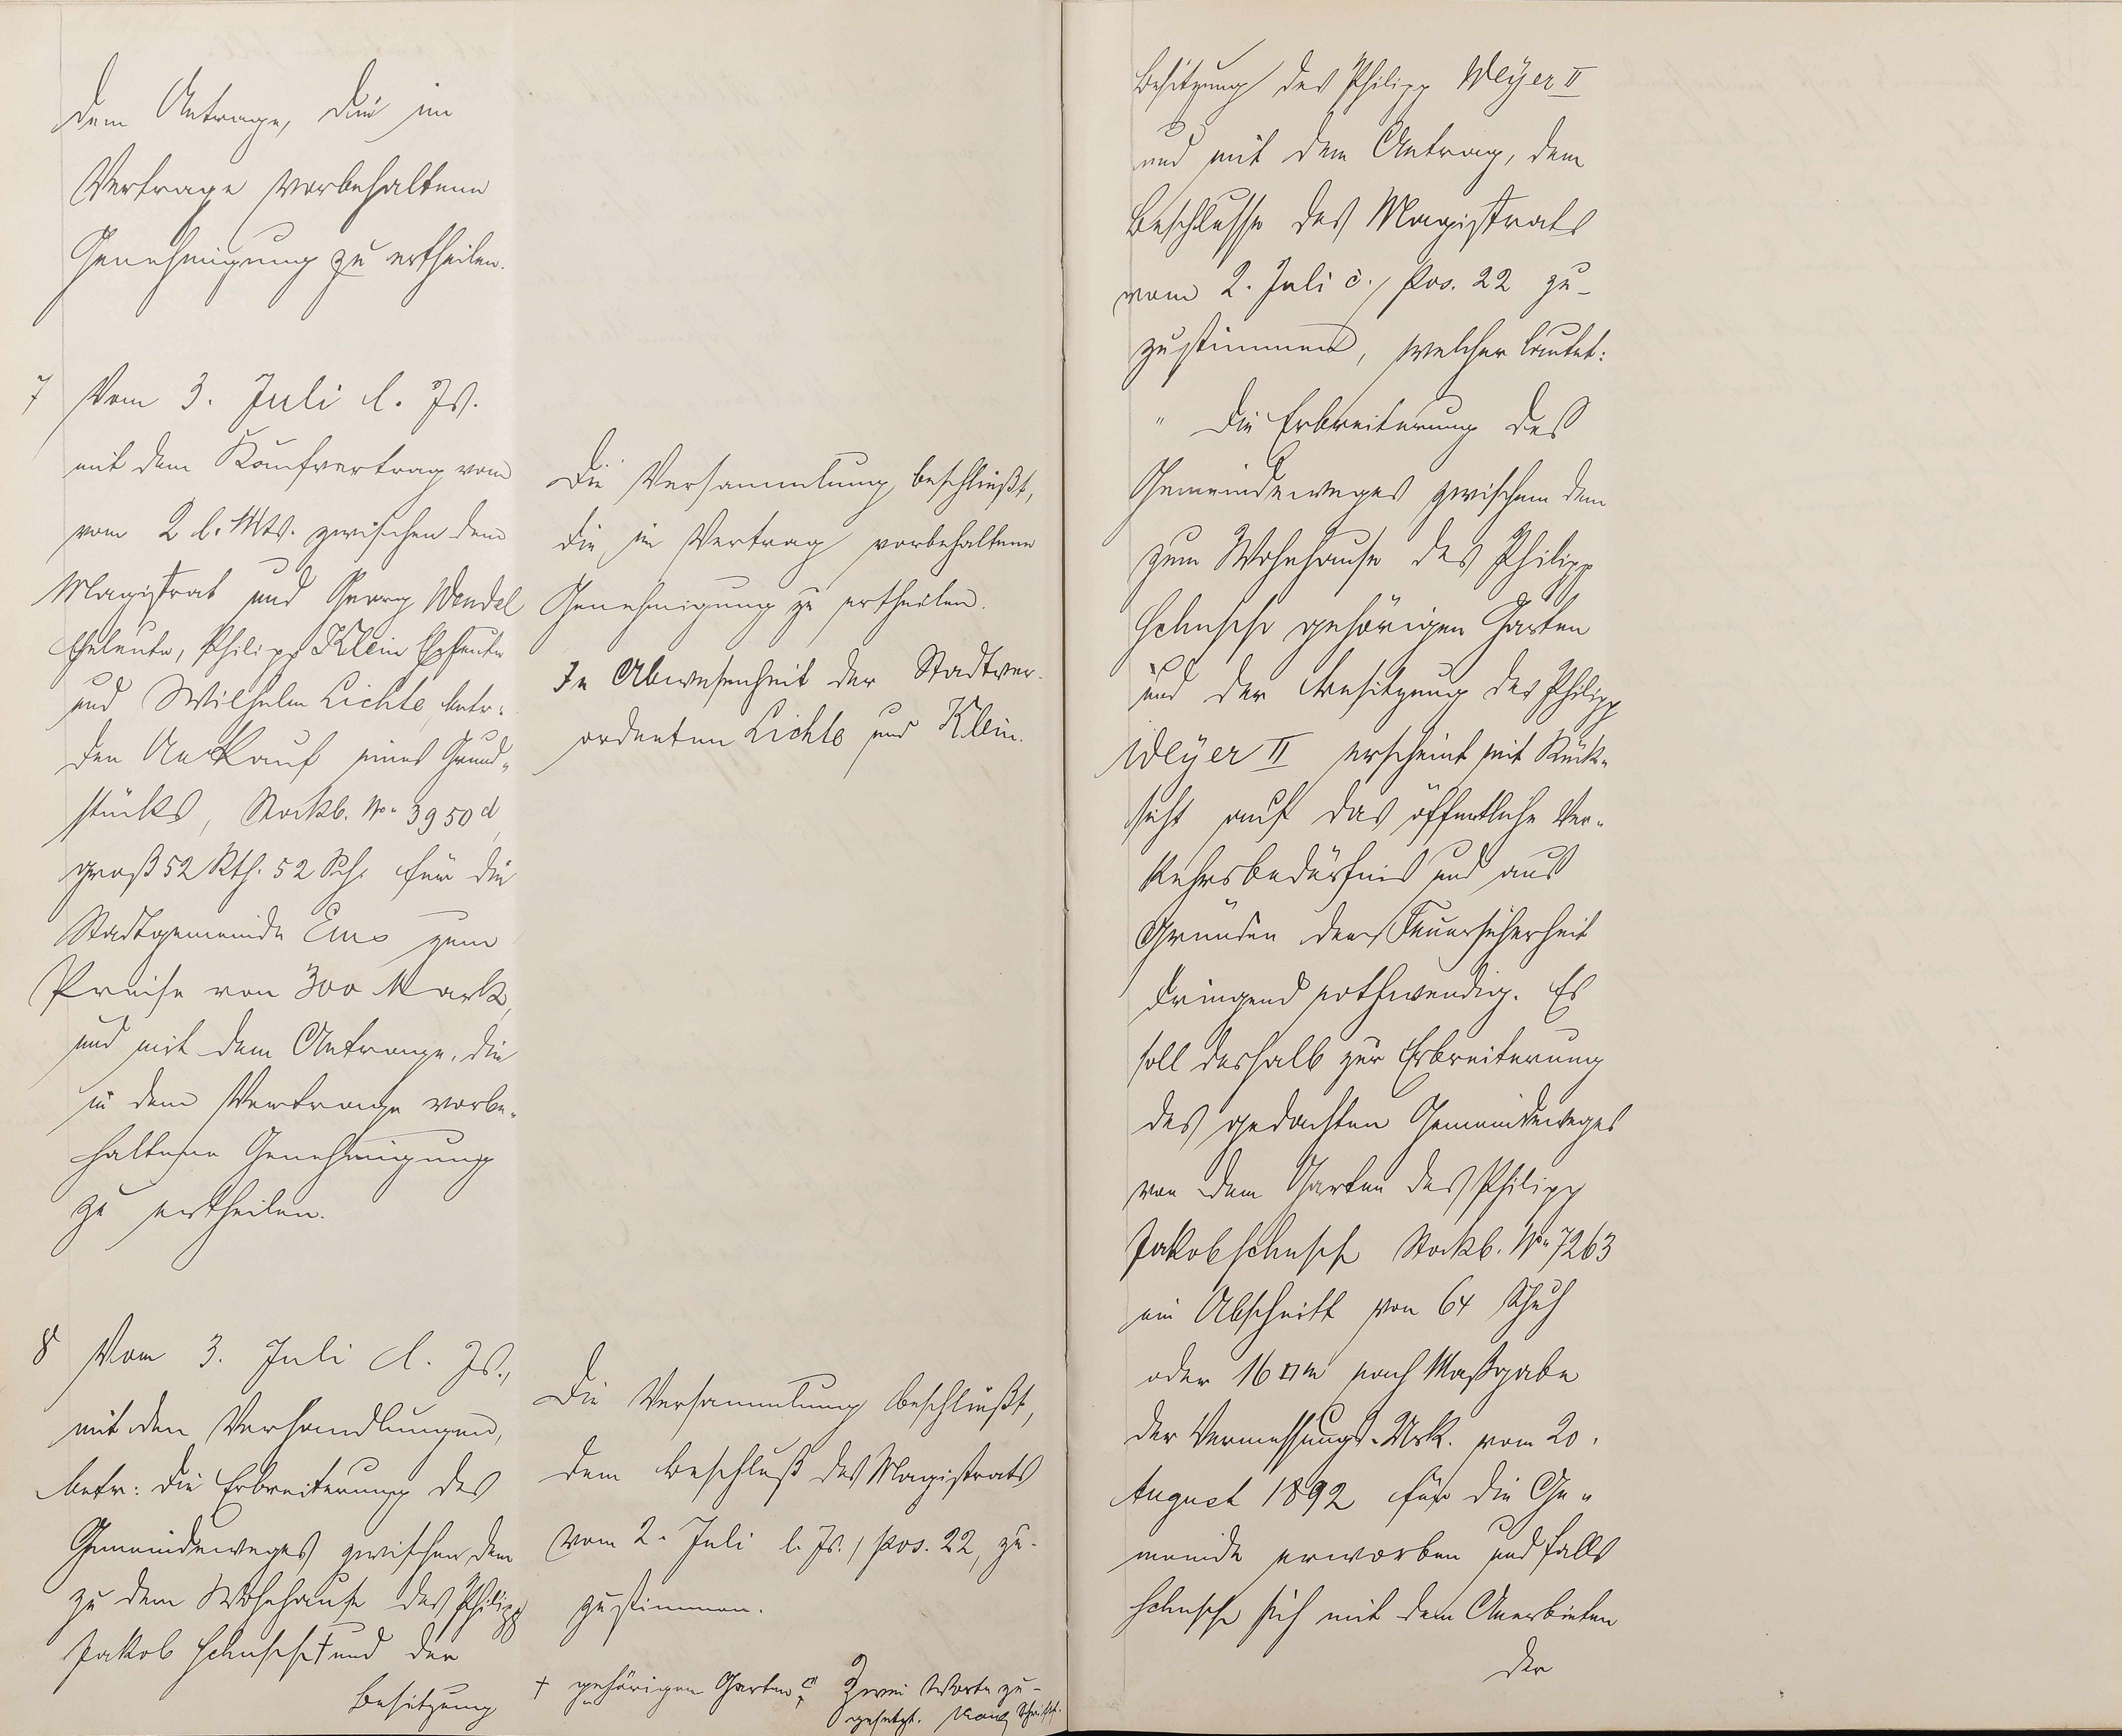 dem Antrage, die im
Vertrage vorbehaltene
Genehmigung zu ertheilen.
7 Vom 3. Juli l. Js.
mit dem Kaufvertrag vom
vom 2 l. Mts. zwischen dem
Magistrat und Georg Wendel
Eheleute, Philipp Klein Eheleute
und Wilhelm Lichte, betr.
den Ankauf eines Grund-
stücks, Stockb. No. 3950 d,
groß 52 Rth. 52 Sch. für die
Stadtgemeinde Ems zum
Preise von 300 Mark,
und mit dem Antrage, die
in dem Vertrage vorbe-
haltene Genehmigung
zu ertheilen.
Die Versammlung beschließt,
die im Vertrag vorbehaltene
Genehmigung zu ertheilen.
In Abwesenheit der Stadtver-
ordneten Lichte und Klein.
8 Vom 3. Juli l. Js.,
mit den Verhandlungen,
betr: die Erbreiterung des
Gemeindeweges zwischen dem
zu dem Wohnhause des Philipp
Jakob † und der
Besitzung
Die Versammlung beschließt,
dem Beschluß des Magistrats
vom 2. Juli l. Js., pos. 22, zu-
zustimmen.
† gehörigen Garten Zwei Worte zu-
gesetzt.
Besitzung des Philipp Weyer II
und mit dem Antrag, dem
Beschlusse des Magistrats
vom 2. Juli c., Pos. 22 zu-
zustimmen, welcher lautet:
" Die Erbreiterung des
Gemeindeweges zwischem dem
zum Wohnhause des Philipp
gehörigen Garten
und der Besitzung des Philipp
Weyer II erscheint mit Rück-
sicht auf das öffentliche Ver-
kehrsbedürfnis und aus
Gründen der Feuersicherheit
dringend nothwendig. Es
soll deshalb zur Erbreiterung
des gedachten Gemeindeweges
von dem Garten des Philipp
Jakob Stockb. No. 7263
ein Abschnitt von 64 Schuh
oder 16 □m nach Maßgabe
der Vermessungs-Urk. vom 20.
August 1892 für die Ge-
meinde erworben und falls
sich mit dem Anerbieten
der